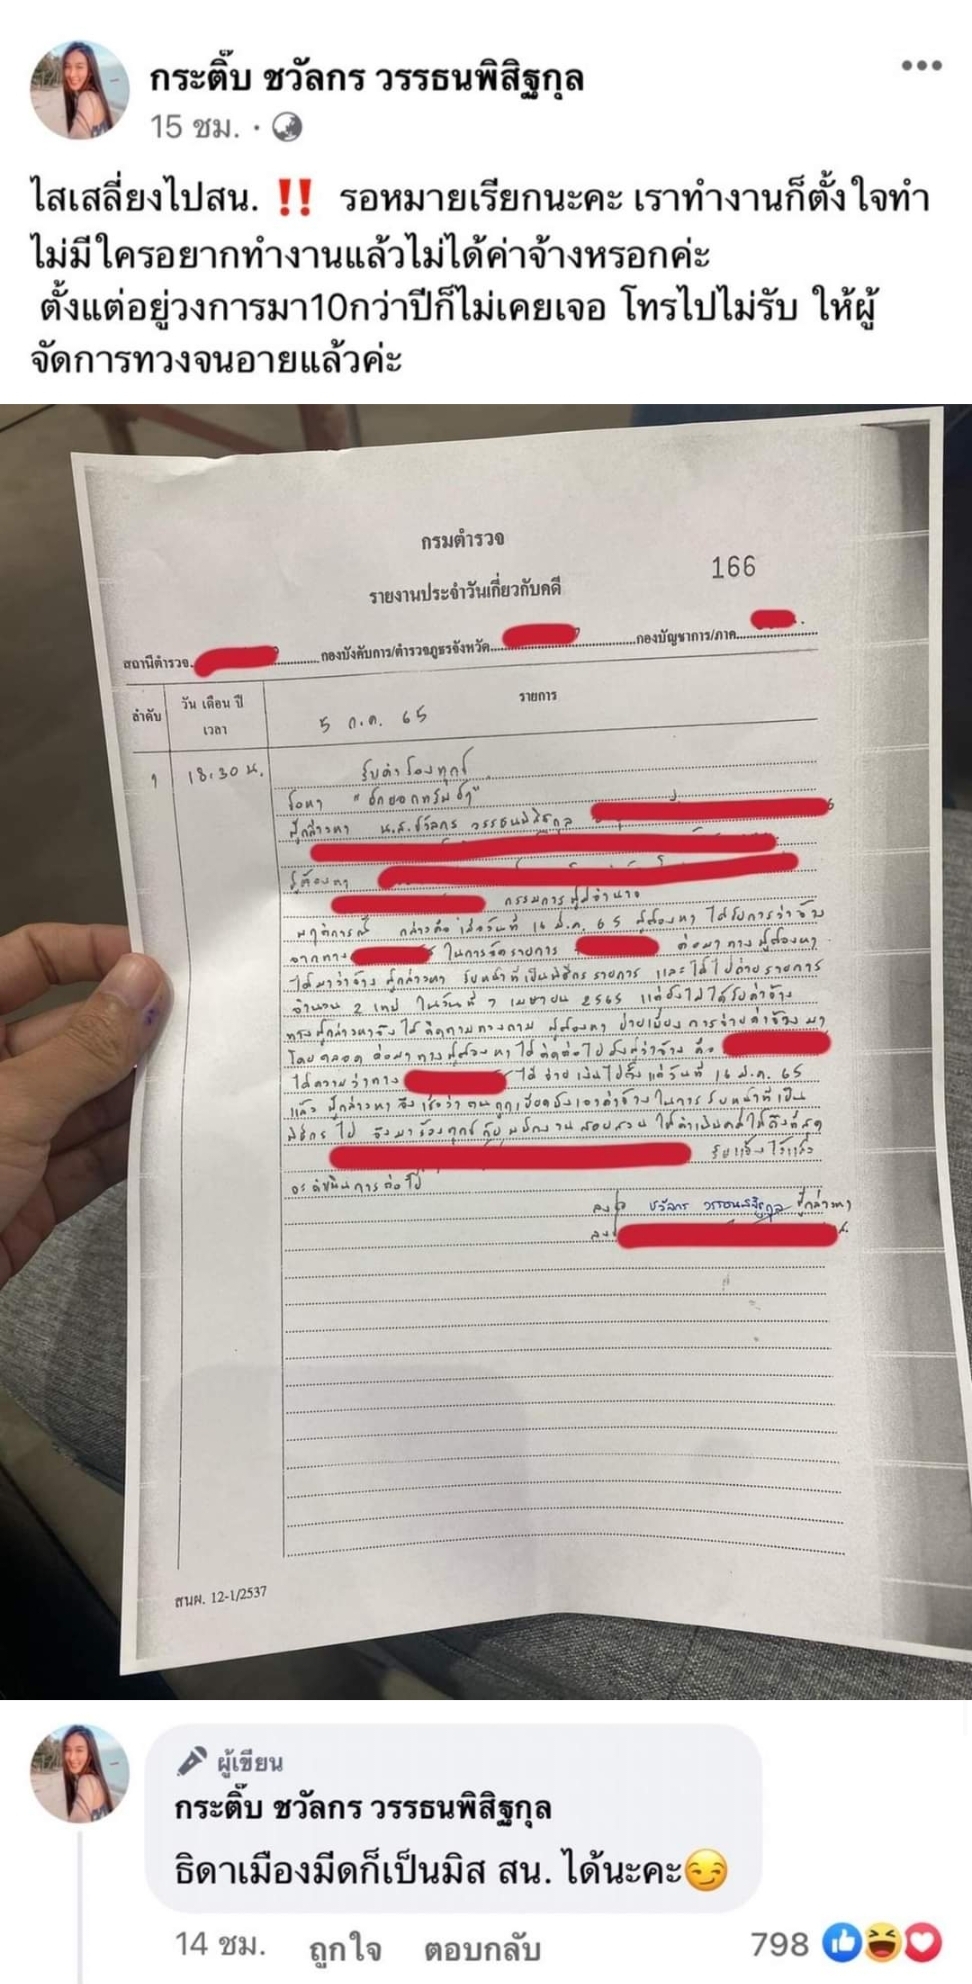 กระติ๊บ ชวัลกร วรรธนพิสิฐกุล
15 ชม. ·
ไสเสลี่ยงไปสน. ‼️ รอหมายเรียกนะคะ เราทำงานก็ตั้งใจทำ
ไม่มีใครอยากทำงานแล้วไม่ได้ค่าจ้างหรอกค่ะ
ตั้งแต่อยู่วงการมา10กว่าปีก็ไม่เคยเจอ โทรไปไม่รับ ให้ผู้
จัดการทวงจนอายแล้วค่ะ
กรมตำรวจ
166
รายงานประจำวันเกี่ยวกับคดี
สถานีตำรวจ กองบังคับการ/ตำรวจภูธรจังหวัด กองบัญชาการ/ภาค
ลำดับ วัน เดือน ปี เวลา รายการ
5 ก.ค. 65
1 18.30 น. รับคำร้องทุกข์
ข้อหา "ยักยอกทรัพย์ฯ"
ผู้กล่าวหา น.ส.ชวัลกร วรรธนพิสิฐกุล
ผู้ต้องหา
กรรมการผู้มีอำนาจ
พฤติการณ์ กล่าวคือ เมื่อวันที่ 16 มี.ค. 65 ผู้ต้องหา ได้รับการว่าจ้าง
จากทาง ในการจัดรายการ ต่อมาทางผู้ต้องหา
ได้มาว่าจ้าง ผู้กล่าวหา รับหน้าที่เป็นพิธีกร รายการ และได้ไปถ่ายรายการ
จำนวน 2 เทป ในวันที่ 7 เมษายน 2565 แต่ยังไม่ได้รับค่าจ้าง
ทางผู้กล่าวหาจึงได้ติดตามทวงถาม ผู้ต้องหา บ่ายเบี่ยง การจ่ายค่าจ้าง มา
โดยตลอด ต่อมาทางผู้กล่าวหา ได้ติดต่อไปยังผู้ว่าจ้าง คือ
ได้ความว่าทาง ได้จ่ายเงินไปตั้งแต่วันที่ 16 มี.ค. 65
แล้ว ผู้กล่าวหาจึงเชื่อว่า ตนถูกเบียดบังเอาค่าจ้างในการรับหน้าที่เป็น
พิธีกร ไป จึงมาร้องทุกข์กับพนักงานสอบสวน ให้ดำเนินคดีให้ถึงที่สุด
รับแจ้งไว้แล้ว
จะดำเนินการต่อไป
ลงชื่อ ชวัลกร วรรธนพิสิฐกุล ผู้กล่าวหา
ลงชื่อ
สนผ. 12-1/2537
ผู้เขียน
กระติ๊บ ชวัลกร วรรธนพิสิฐกุล
ธิดาเมืองมีดก็เป็นมิส สน. ได้นะคะ😏
14 ชม. ถูกใจ ตอบกลับ 798